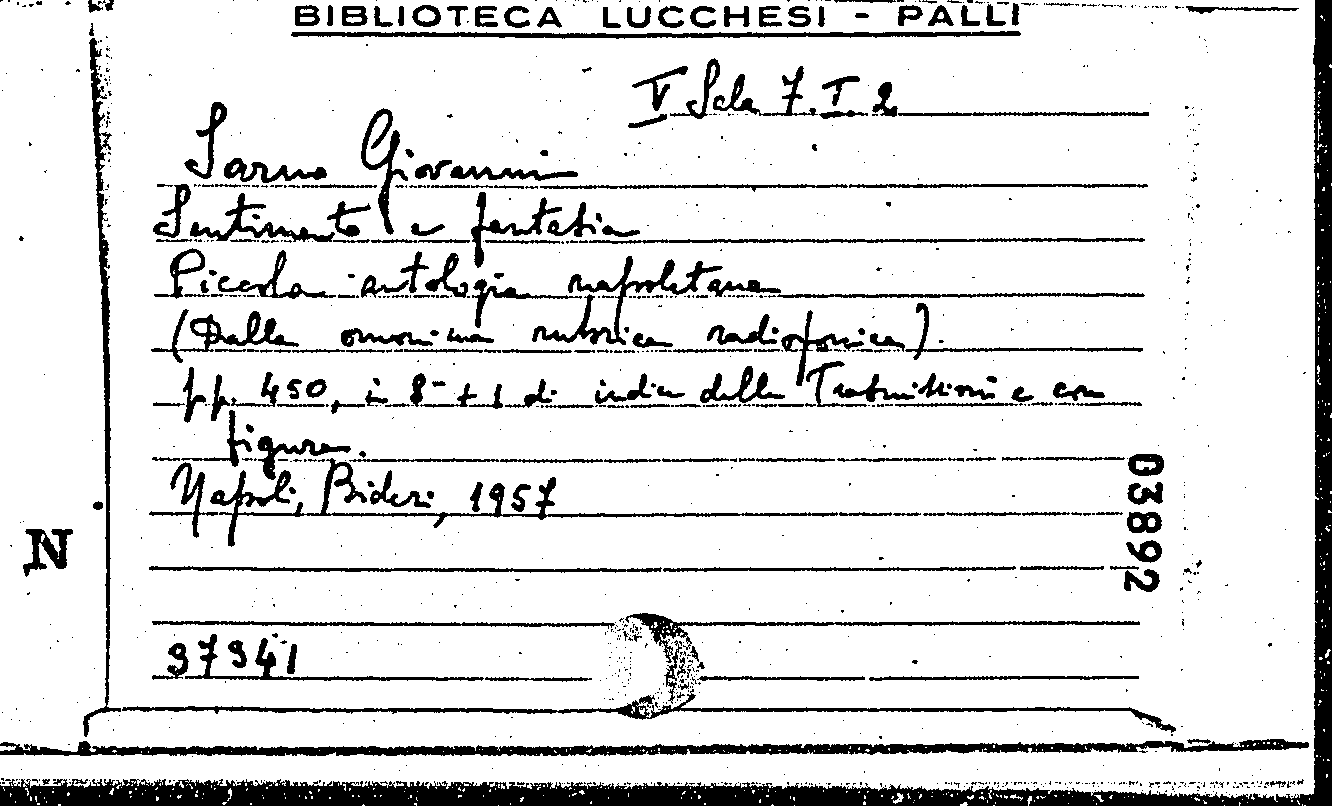 BIBLIOTECA LUCCHESI - PALLI
V Sala 7. I. 2.
Sarno Giovanni
Sentimento e fantasia
Piccola antologia napoletana
(Dalla omonima rubrica radiofonica).
pp. 450, in 8- + 1 di indice delle Trasmissioni e con
figure.
Napoli, Bideri, 1957
03892
N
97941